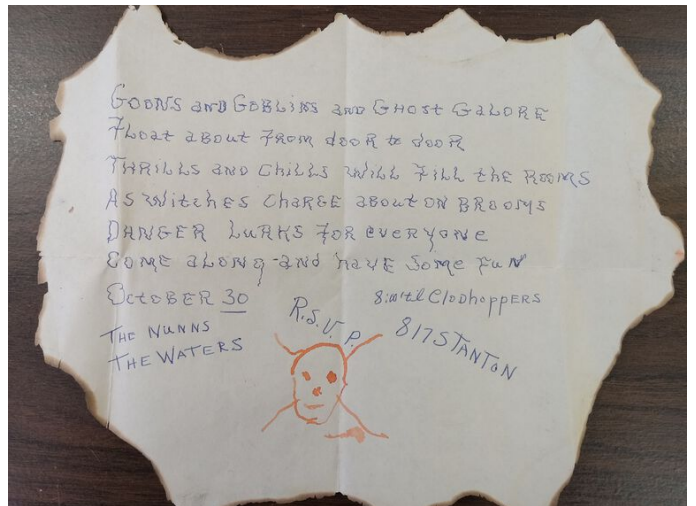 GOONS AND GOBLINS AND GHOST GALORE
FLOAT ABOUT FROM dOOR to dOOR
THRILLS AND CHILLS WILL FILL THE ROOMS
AS WITCHES CHARGE ABOUT ON BROOMS
DANGER LURKS FOR EVERYONE
COME ALONG-AND HAVE SOME FUN
OCTOBER 30
8: 'til Clodhoppers
R.S.V.P.
THE NUNNS
817 STANTON
THE WATERS